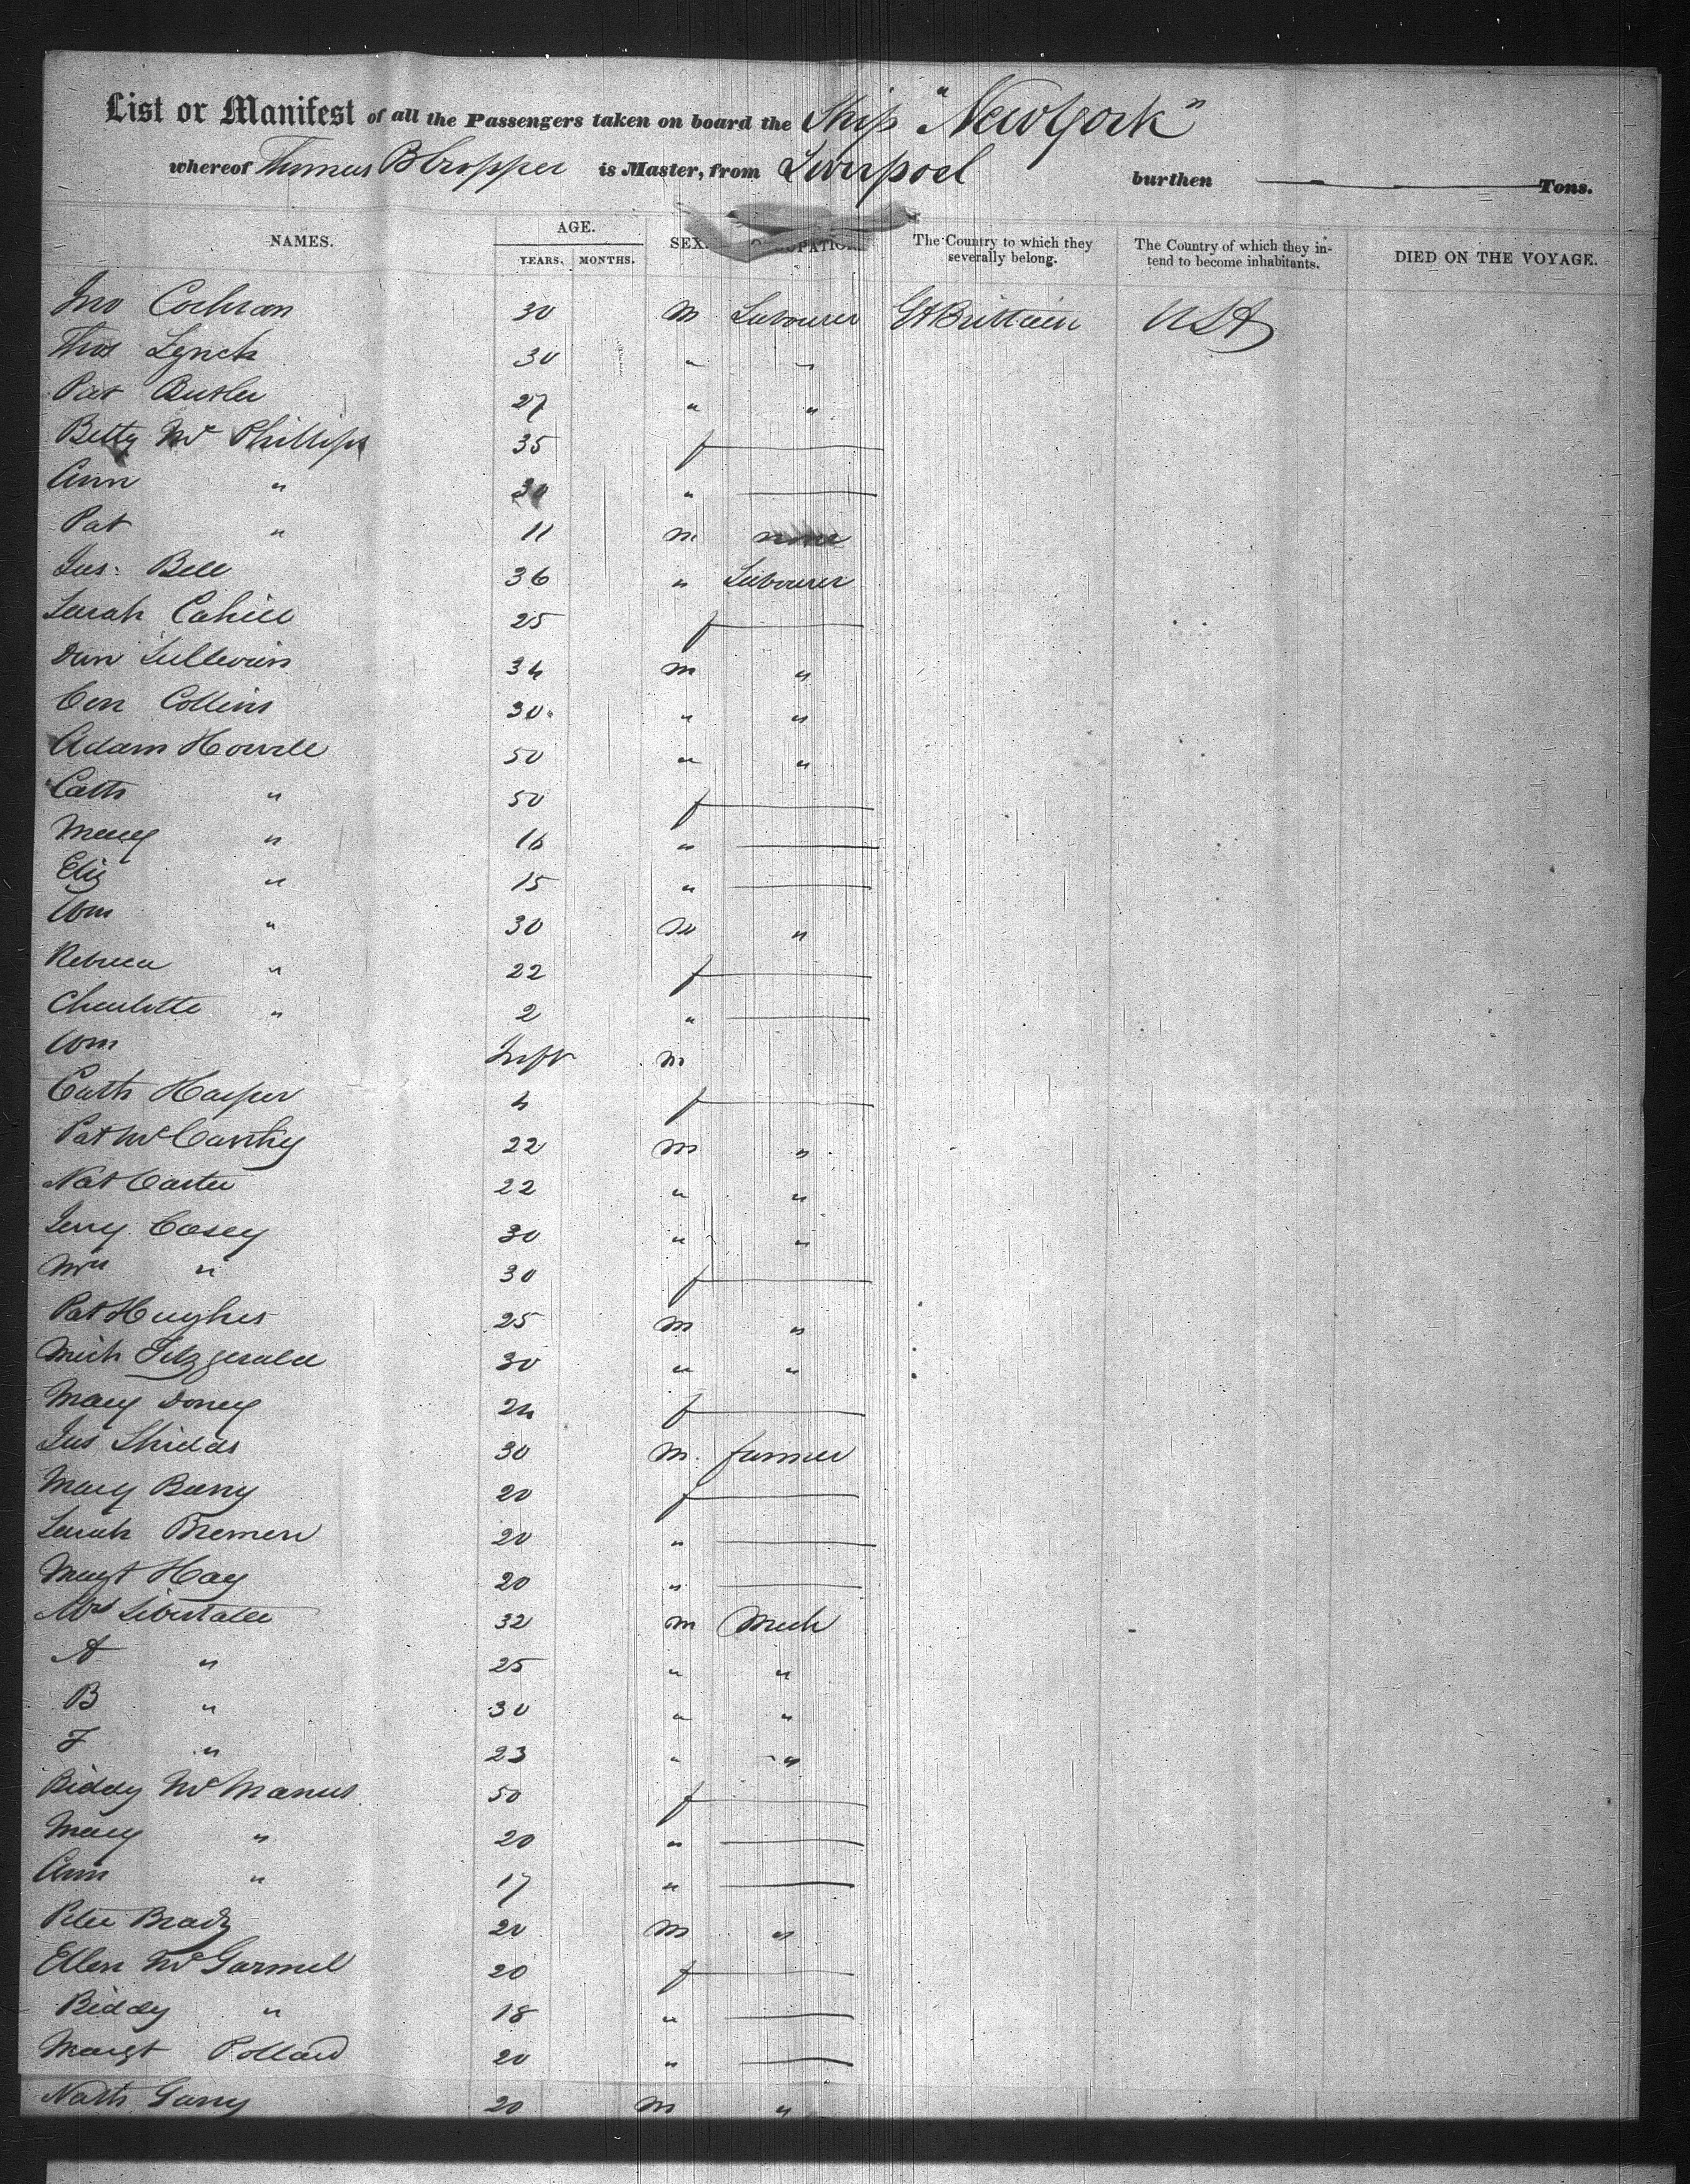 List or Manifest of all the Passengers taken on board the Ship "New York"
whereof Thomas B Cropper is Master, from Liverpool burthen Tons.
NAMES. AGE. YEARS. MONTHS. SEX. OCCUPATION. The Country to which they severally belong. The Country of which they intend to become inhabitants. DIED ON THE VOYAGE.
Jno Cochran 30 m Labourer Gt Brittain USA
Thos Lynch 30 " "
Pat Butler 27 " "
Betty Mc Phillips 35 f
Ann " 30 "
Pat " 11 m none
Jas. Bell 36 " Labourer
Sarah Cahill 25 f
Dan Sullivan 34 m "
Con Collins 30 " "
Adam Howell 50 " "
Cath " 50 f
Mary " 16 "
Eliz " 15 "
Wm " 30 m "
Rebecca " 22 f
Charlotte " 2 "
Wm Inft m
Cath Harper 4 f
Pat McCarthy 22 m "
Nat Carter 22 " "
Jerry Casey 30 " "
Mrs " 30 f
Pat Hughes 25 m "
Mich Fitzgerald 30 " "
Mary Doney 24 f
Jas Shields 30 m farmer
Mary Barry 20 f
Sarah Bremen 20 "
Margt Hay 20 "
32 m Mech
A " 25 " "
B " 30 " "
F " 23 " "
Biddy Mc Manus 50 f
Mary " 20 "
Ann " 17 "
Peter Brady 20 m "
Ellen Mc Garmel 20 f
Biddy " 18 "
Margt Pollard 20 "
Nath Garry 20 m "